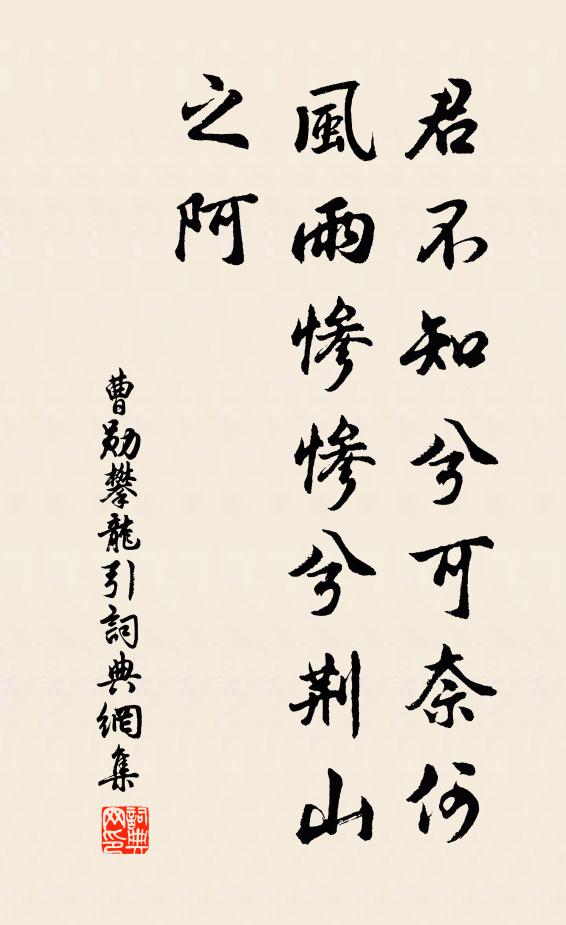 君不知兮可奈何
風雨慘慘兮荆山
之阿
曹勛攀龍引詞典網集
詞典
网印